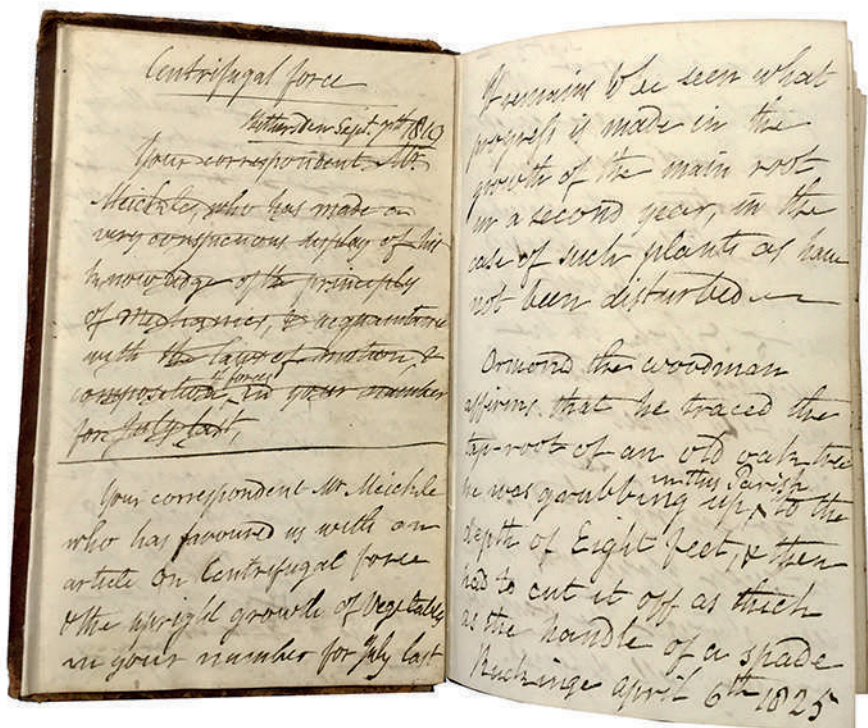 Centrifugal force
Bethersden Sept. 7th 1819
Your correspondent Mr.
Meickle, who has made a
very conspicuous display of his
knowledge of the principles
of Mechanics, & acquaintance
with the laws of motion, &
composition of forces, in your number
for July last,
Your correspondent Mr Meickle
who has favoured us with an
article on Centrifugal force
& the upright growth of Vegetables
in your number for July last
It remains to be seen what
progress is made in the
growth of the main root
in a second year, in the
case of such plants as have
not been disturbed
Ormond the woodman
affirms that he traced the
tap-root of an old oak tree
he was grubbing up, in this Parish to the
depth of Eight feet, & then
had to cut it off as thick
as the handle of a spade
Ruckinge april 6th 1825